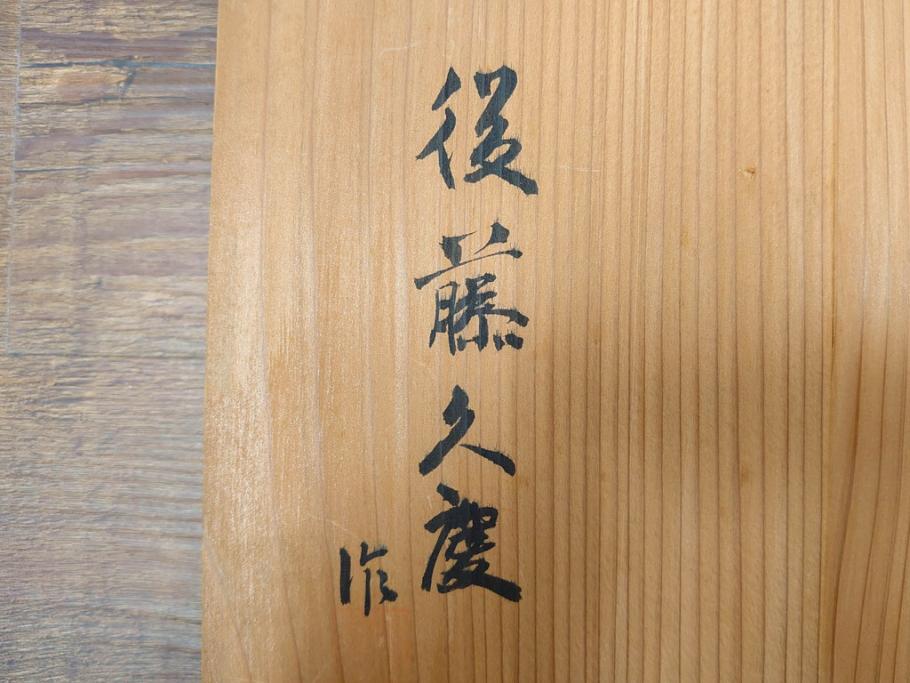 後藤久慶
作